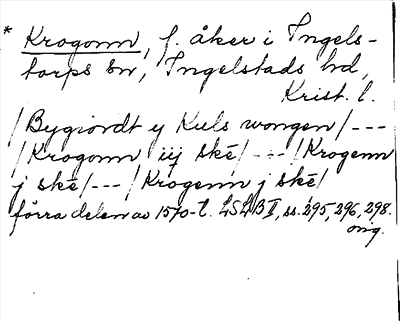 * Krogonn, f. åker i Ingels-
torps sn, Ingelstads hd,
Krist. l.
/Bygiordt y Kuls wongen/---
/Krogonn iij skē/---/Krogenn
j skē/---/Krogenn j skē/
förra delen av 1570-t. LSLB II, ss. 295, 296, 298.
orig.